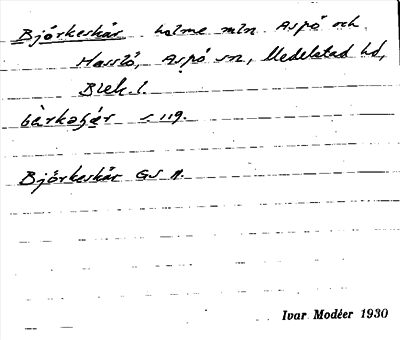 Björkeskär holme mln Aspö och
Hasslö, Aspö sn, Medelstad hd,
Blek. l.
s 119.
Björkeskär GS A.
Ivar Modéer 1930